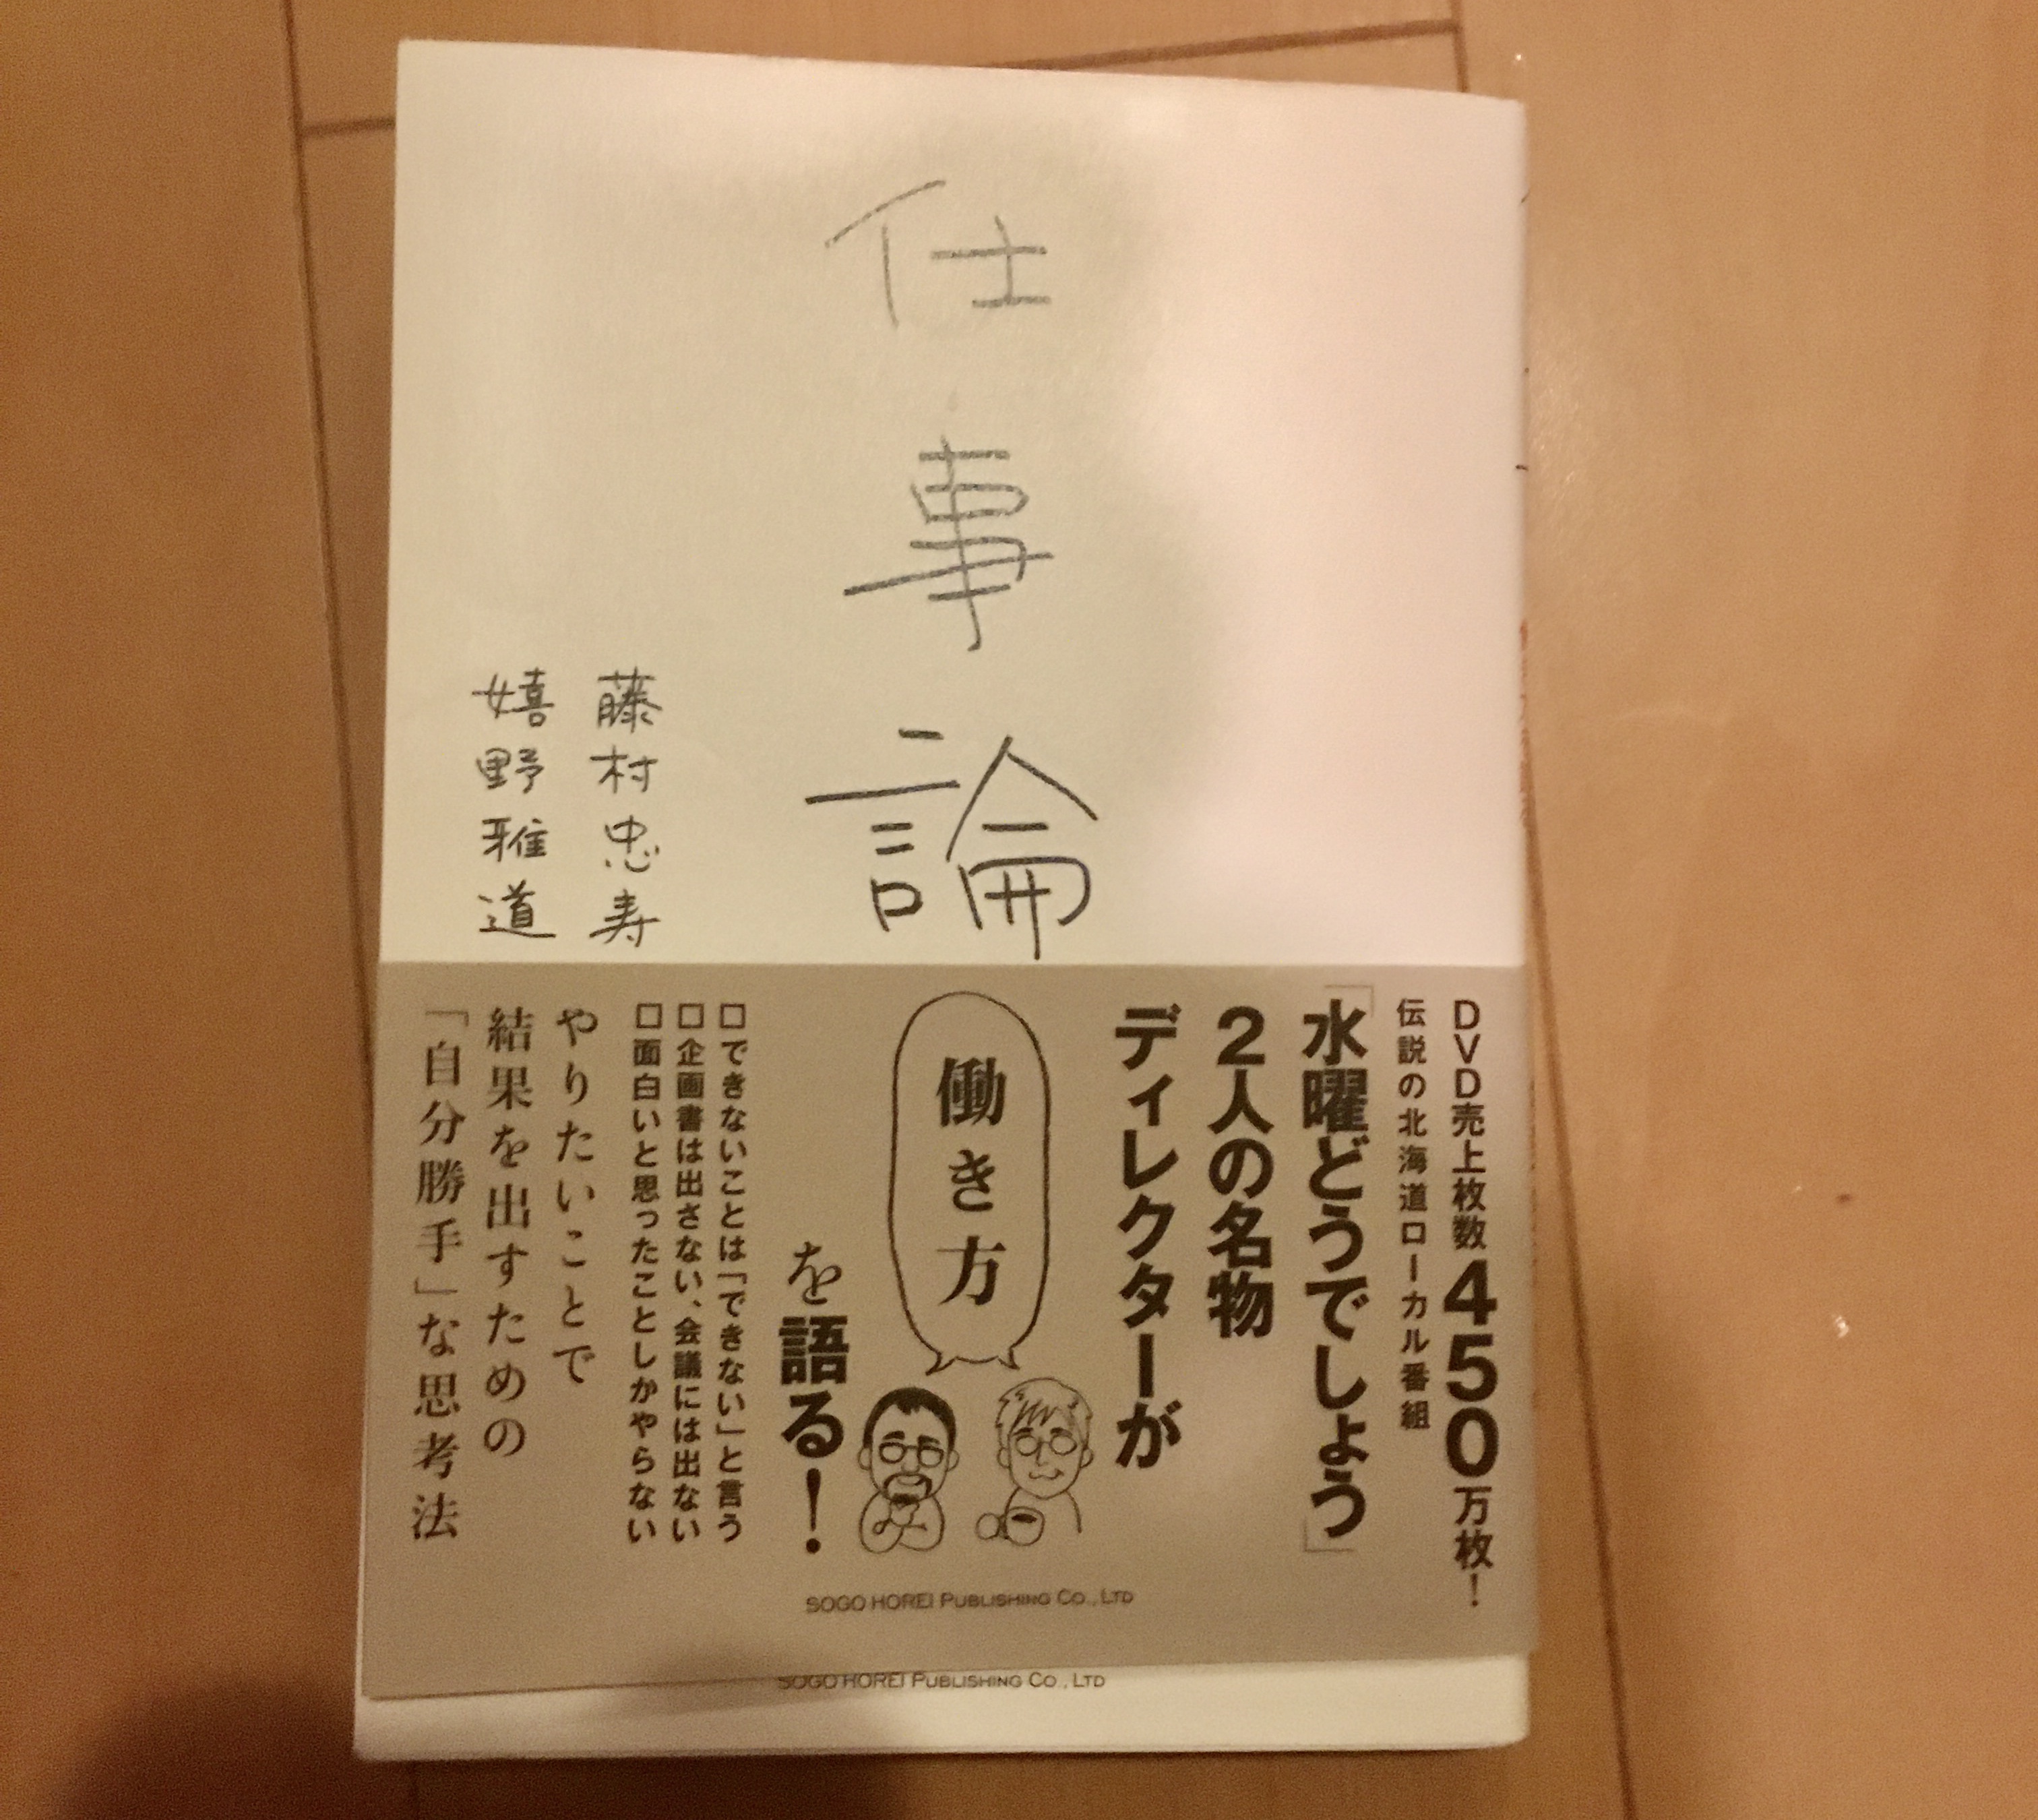 仕事論
藤村忠寿
嬉野雅道
DVD売上枚数450万枚！
伝説の北海道ローカル番組
「水曜どうでしょう」
2人の名物
ディレクターが
働き方
を語る！
□できないことは「できない」と言う
□企画書は出さない、会議には出ない
□面白いと思ったことしかやらない
やりたいことで
結果を出すための
「自分勝手」な思考法
SOGO HOREI PUBLISHING CO., LTD
SOGO HOREI PUBLISHING CO., LTD